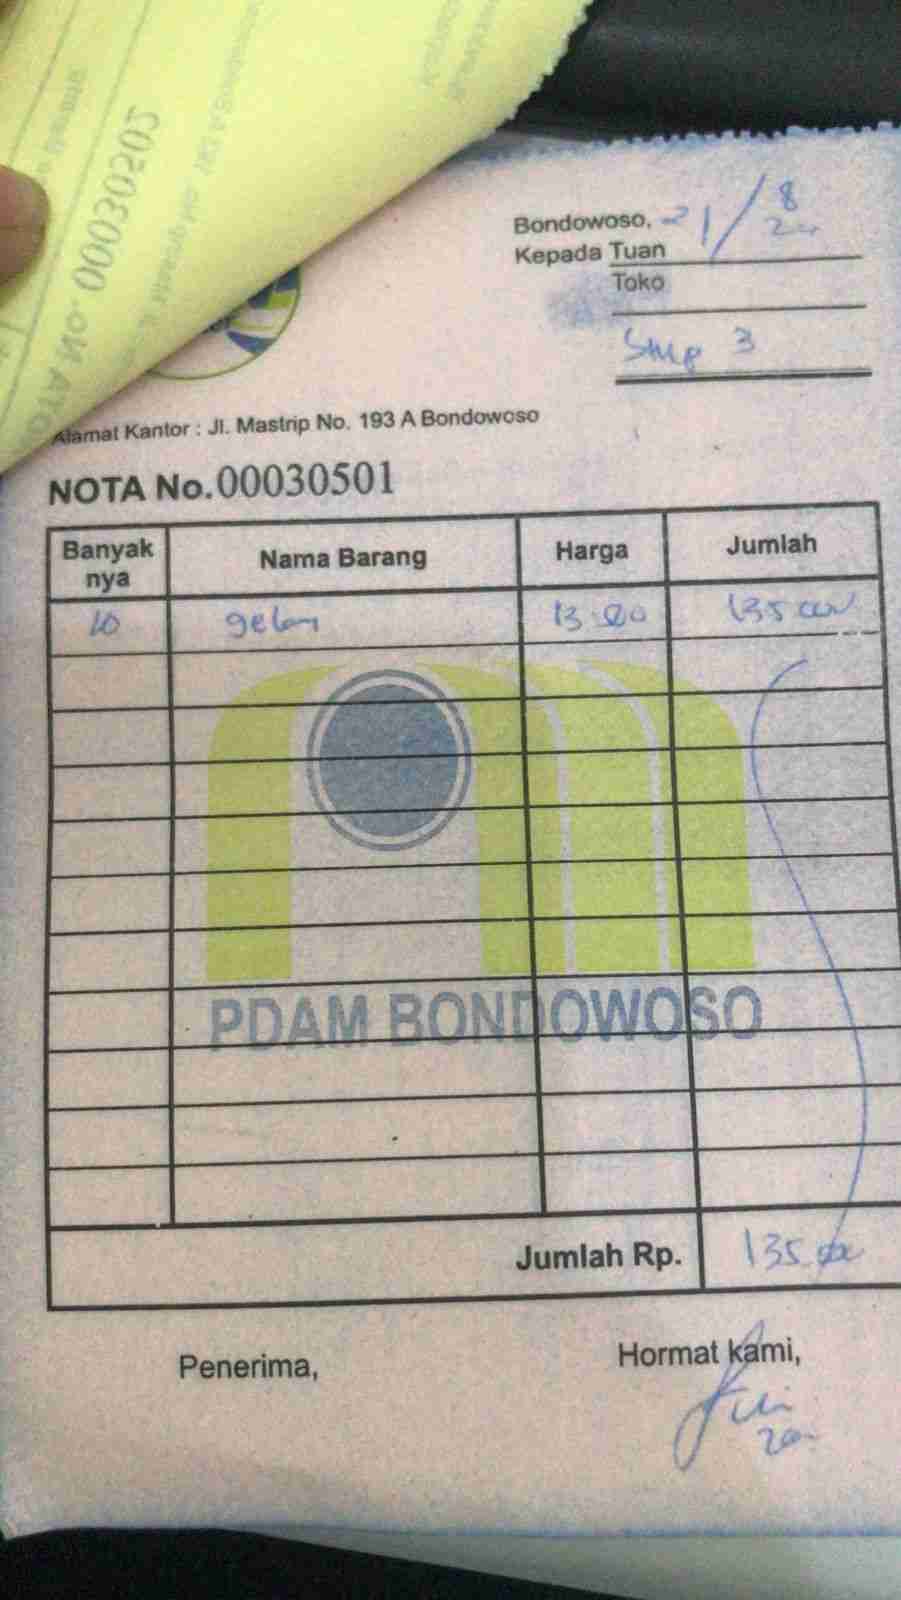 NOTA No. 00030502
Bondowoso, 21/8 24
Kepada Tuan
Toko
Smp 3
Alamat Kantor : Jl. Mastrip No. 193 A Bondowoso
NOTA No. 00030501
Banyak nya Nama Barang Harga Jumlah
10 gelas 135.000
PDAM BONDOWOSO
Jumlah Rp. 135.000
Penerima, Hormat kami,